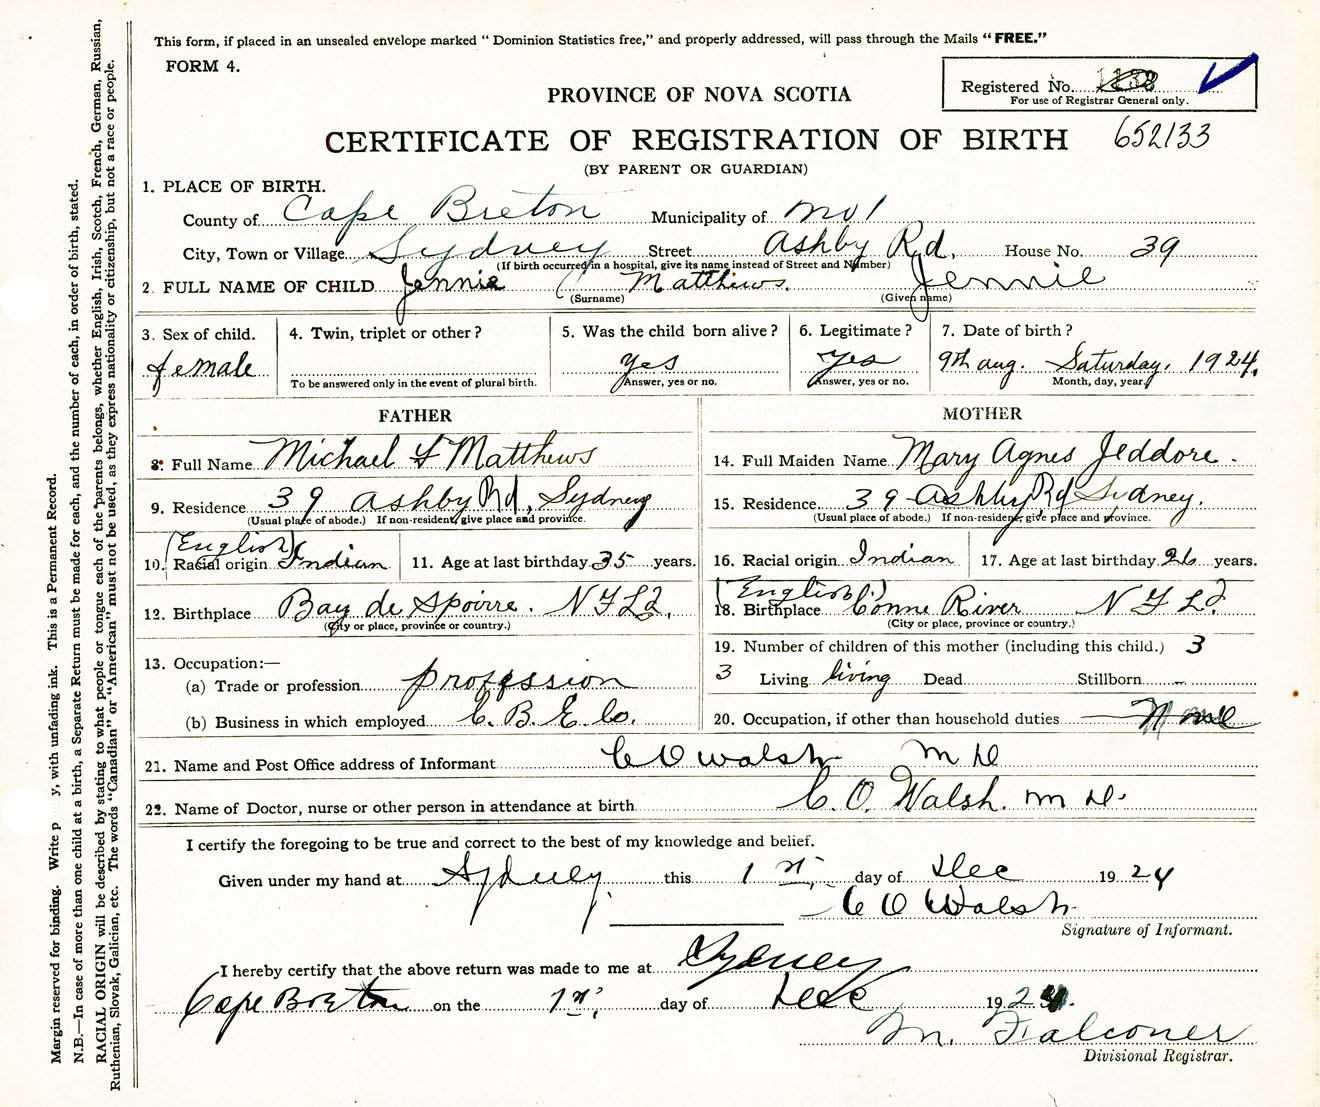 This form, if placed in an unsealed envelope marked “ Dominion Statistics free,” and properly addressed, will pass through the Mails “ FREE.”
FORM 4.
Registered No.
For use of Registrar General only.
PROVINCE OF NOVA SCOTIA
CERTIFICATE OF REGISTRATION OF BIRTH 652133
(BY PARENT OR GUARDIAN)
1. PLACE OF BIRTH.
County of Cape Breton Municipality of No 1
City, Town or Village Sydney Street Ashby Rd. House No. 39
(If birth occurred in a hospital, give its name instead of Street and Number)
2 FULL NAME OF CHILD Jennie Matthews. Jennie
(Surname) (Given name)
3. Sex of child. 4. Twin, triplet or other ? 5. Was the child born alive ? 6. Legitimate ? 7. Date of birth ?
female yes yes 9th aug. Saturday, 1924.
To be answered only in the event of plural birth. Answer, yes or no. Answer, yes or no. Month, day, year.
FATHER MOTHER
8. Full Name Michael F Matthews 14. Full Maiden Name Mary Agnes Jeddore.
9. Residence 39 Ashby Rd, Sydney 15. Residence 39 Ashby Rd Sydney.
(Usual place of abode.) If non-resident, give place and province. (Usual place of abode.) If non-resident, give place and province.
(English)
10. Racial origin Indian 11. Age at last birthday 35 years. 16. Racial origin Indian 17. Age at last birthday 26 years.
(English.)
12. Birthplace Bay de Spoirre. NFLd, 18. Birthplace Conne River NFLd
(City or place, province or country.) (City or place, province or country.)
13. Occupation:—
19. Number of children of this mother (including this child.) 3
(a) Trade or profession profession 3 Living living Dead Stillborn –
(b) Business in which employed C. B. E. Co. 20. Occupation, if other than household duties
21. Name and Post Office address of Informant C O Walsh M D
22. Name of Doctor, nurse or other person in attendance at birth C. O. Walsh. M D.
I certify the foregoing to be true and correct to the best of my knowledge and belief.
Given under my hand at Sydney this 1st day of Dec 1924
C O Walsh
Signature of Informant.
I hereby certify that the above return was made to me at Sydney
Cape Breton on the 1st day of Dec 1924.
M. Falconer
Divisional Registrar.
Margin reserved for binding. Write p y, with unfading ink. This is a Permanent Record.
N.B.—In case of more than one child at a birth, a Separate Return must be made for each, and the number of each, in order of birth, stated.
RACIAL ORIGIN will be described by stating to what people or tongue each of the parents belongs, whether English, Irish, Scotch, French, German, Russian,
Ruthenian, Slovak, Galician, etc. The words “Canadian” or “American” must not be used, as they express nationality or citizenship, but not a race or people.